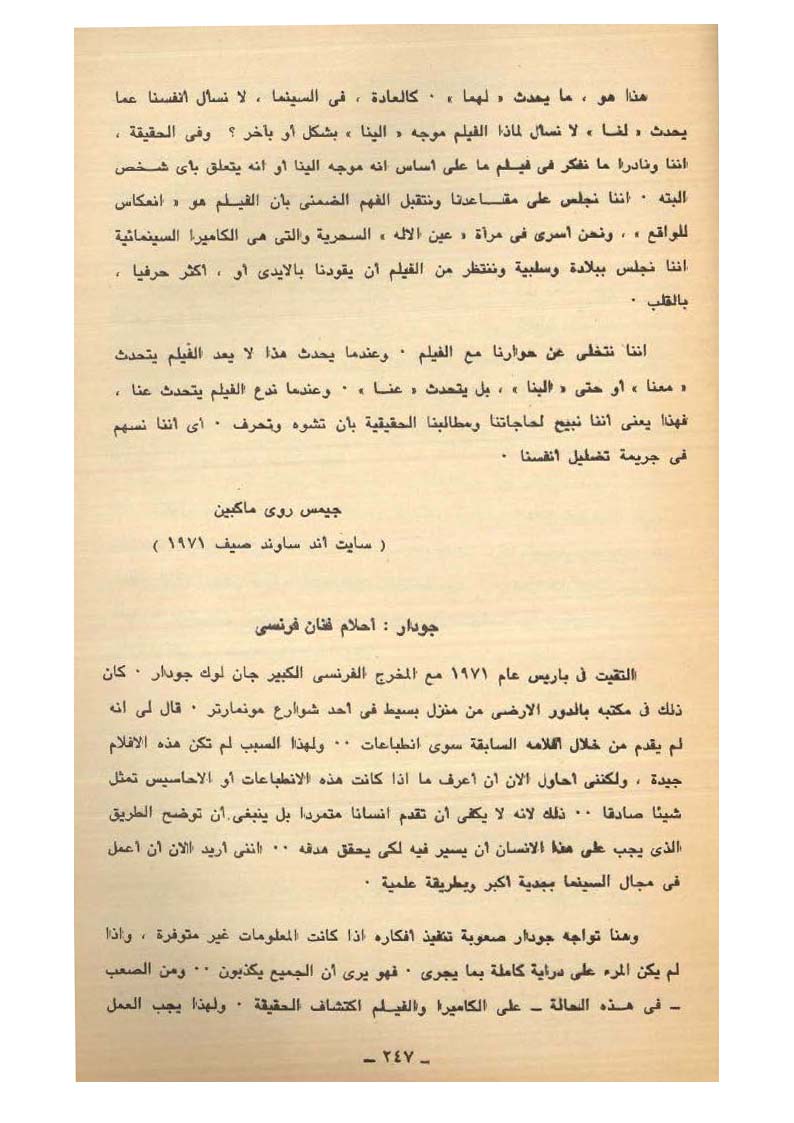 هذا هو ، ما يحدث « لهما » ٠ كالعادة ، فى السينما ، لا نسأل أنفسنا عما
يحدث « لنـا » لا نسأل لماذا الفيلم موجه « الينا » بشكل أو بآخر ؟ وفى الحقيقة ،
اننا ونادرا ما نفكر فى فيـلم ما على أساس انه موجه الينا أو انه يتعلق بأى شـخص
البته ٠ اننا نجلس على مقـاعدنا ونتقبل الفهم الضمنى بأن الفيـلم هو « انعكاس
للواقع » ، ونحن أسرى فى مرآة « عين الاله » السحرية والتى هى الكاميرا السينمائية
اننا نجلس ببلادة وسلبية وننتظر من الفيلم أن يقودنا بالايدى أو ، أكثر حرفيا ،
بالقلب ٠
اننا نتخلى عن حوارنا مع الفيلم ٠ وعندما يحدث هذا لا يعد الفيلم يتحدث
« معنا » أو حتى « الينا » ، بل يتحدث « عنـا » ٠ وعندما ندع الفيلم يتحدث عنا ،
فهذا يعنى أننا نبيح لحاجاتنا ومطالبنا الحقيقية بأن تشوه وتحرف ٠ أى أننا نسهم
فى جريمة تضليل أنفسنا ٠
جيمس روى ماكبين
( سايت أند ساوند صيف ١٩٧١ )
جودار : أحلام فنان فرنسى
التقيت فى باريس عام ١٩٧١ مع المخرج الفرنسى الكبير جان لوك جودار ٠ كان
ذلك فى مكتبه بالدور الارضى من منزل بسيط فى أحد شوارع مونمارتر ٠ قال لى انه
لم يقدم من خلال أفلامه السابقة سوى انطباعات ٠٠ ولهذا السبب لم تكن هذه الافلام
جيدة ، ولكننى أحاول الان أن أعرف ما اذا كانت هذه الانطباعات أو الاحاسيس تمثل
شيئا صادقا ٠٠ ذلك لانه لا يكفى أن تقدم انسانا متمردا بل ينبغى أن توضح الطريق
الذى يجب على هذا الانسان أن يسير فيه لكى يحقق هدفه ٠٠ اننى أريد الان أن أعمل
فى مجال السينما بجدية أكبر وبطريقة علمية ٠
وهنا تواجه جودار صعوبة تنفيذ أفكاره اذا كانت المعلومات غير متوفرة ، واذا
لم يكن المرء على دراية كاملة بما يجرى ٠ فهو يرى أن الجميع يكذبون ٠٠ ومن الصعب
ـ فى هـذه الحالة ـ على الكاميرا والفيـلم اكتشاف الحقيقة ٠ ولهذا يجب العمل
ـ ٢٤٧ ـ